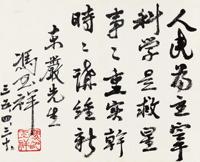 人民為主宰
科学是救星
事〻重實幹
時〻講維新
東嚴先生
馮玉祥
三五、四、三十、